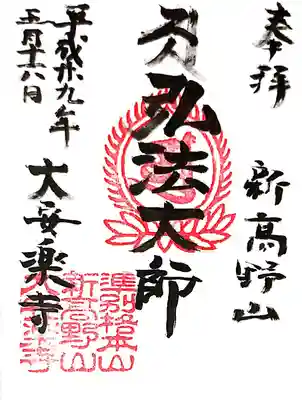 奉拝
新高野山
弘法大師
大安楽寺
平成廿九年
五月十六日
準別格本山
新高野山
大安楽寺